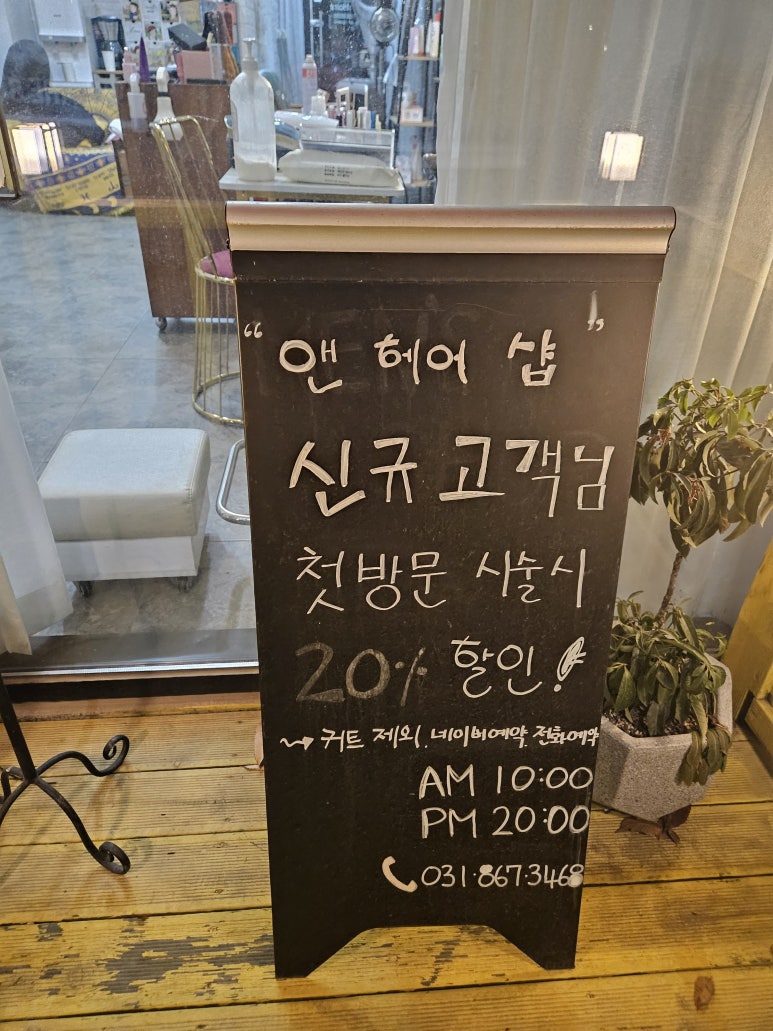 “ 앤 헤어 샵 ”
신규 고객님
첫방문 시술시
20% 할인!
→ 커트 제외. 네이버예약. 전화예약
AM 10:00
PM 20:00
031·867·3468